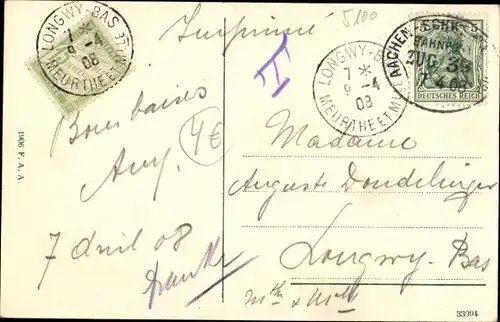 LONGWY-BAS
7 *
9 -4
08
MEURTHE ET M
Imprimé
5100
T
LONGWY-BAS
7 *
9 -4
08
MEURTHE ET M
AACHEN
BAHNPOST
ZUG 38
7 4 08
DEUTSCHES REICH
Bons baisers
4€
7 avril 08
1906 F. A. A.
Madame
Auguste Dondelinger
Longwy-Bas
Mthe & Mlle
33094